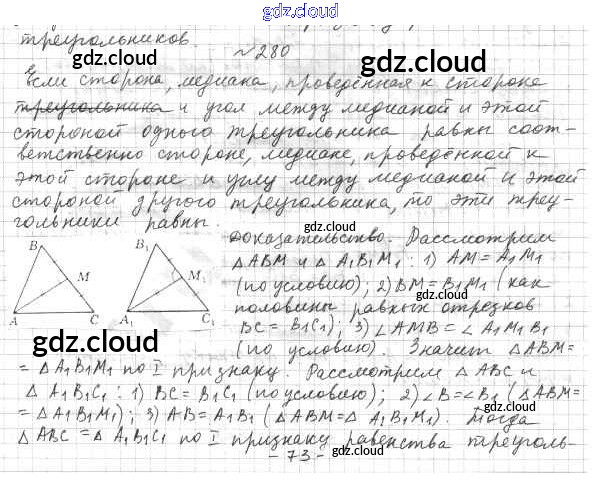 gdz.cloud
треугольников.
№280
Если сторона, медиана, проведённая к стороне
треугольника и угол между медианой и этой
стороной одного треугольника равны соот-
ветственно стороне, медиане, проведённой к
этой стороне и углу между медианой и этой
стороной другого треугольника, то эти треу-
гольники равны.
Доказательство. Рассмотрим
ΔABM и ΔA1B1M1 : 1) AM = A1M1
(по условию); 2) BM = B1M1 (как
половины равных отрезков
BC = B1C1); 3) ∠AMB = ∠A1M1B1
(по условию). Значит ΔABM =
= ΔA1B1M1 по I признаку. Рассмотрим ΔABC и
ΔA1B1C1 : 1) BC = B1C1 (по условию); 2) ∠B = ∠B1 (ΔABM =
= ΔA1B1M1); 3) AB = A1B1 (ΔABM = ΔA1B1M1). Тогда
ΔABC = ΔA1B1C1 по I признаку равенства треуголь-
- 73 -
B
M
A
C
B1
M1
A1
C1
gdz.cloud
gdz.cloud
gdz.cloud
gdz.cloud
gdz.cloud
gdz.cloud
gdz.cloud
gdz.cloud
gdz.cloud